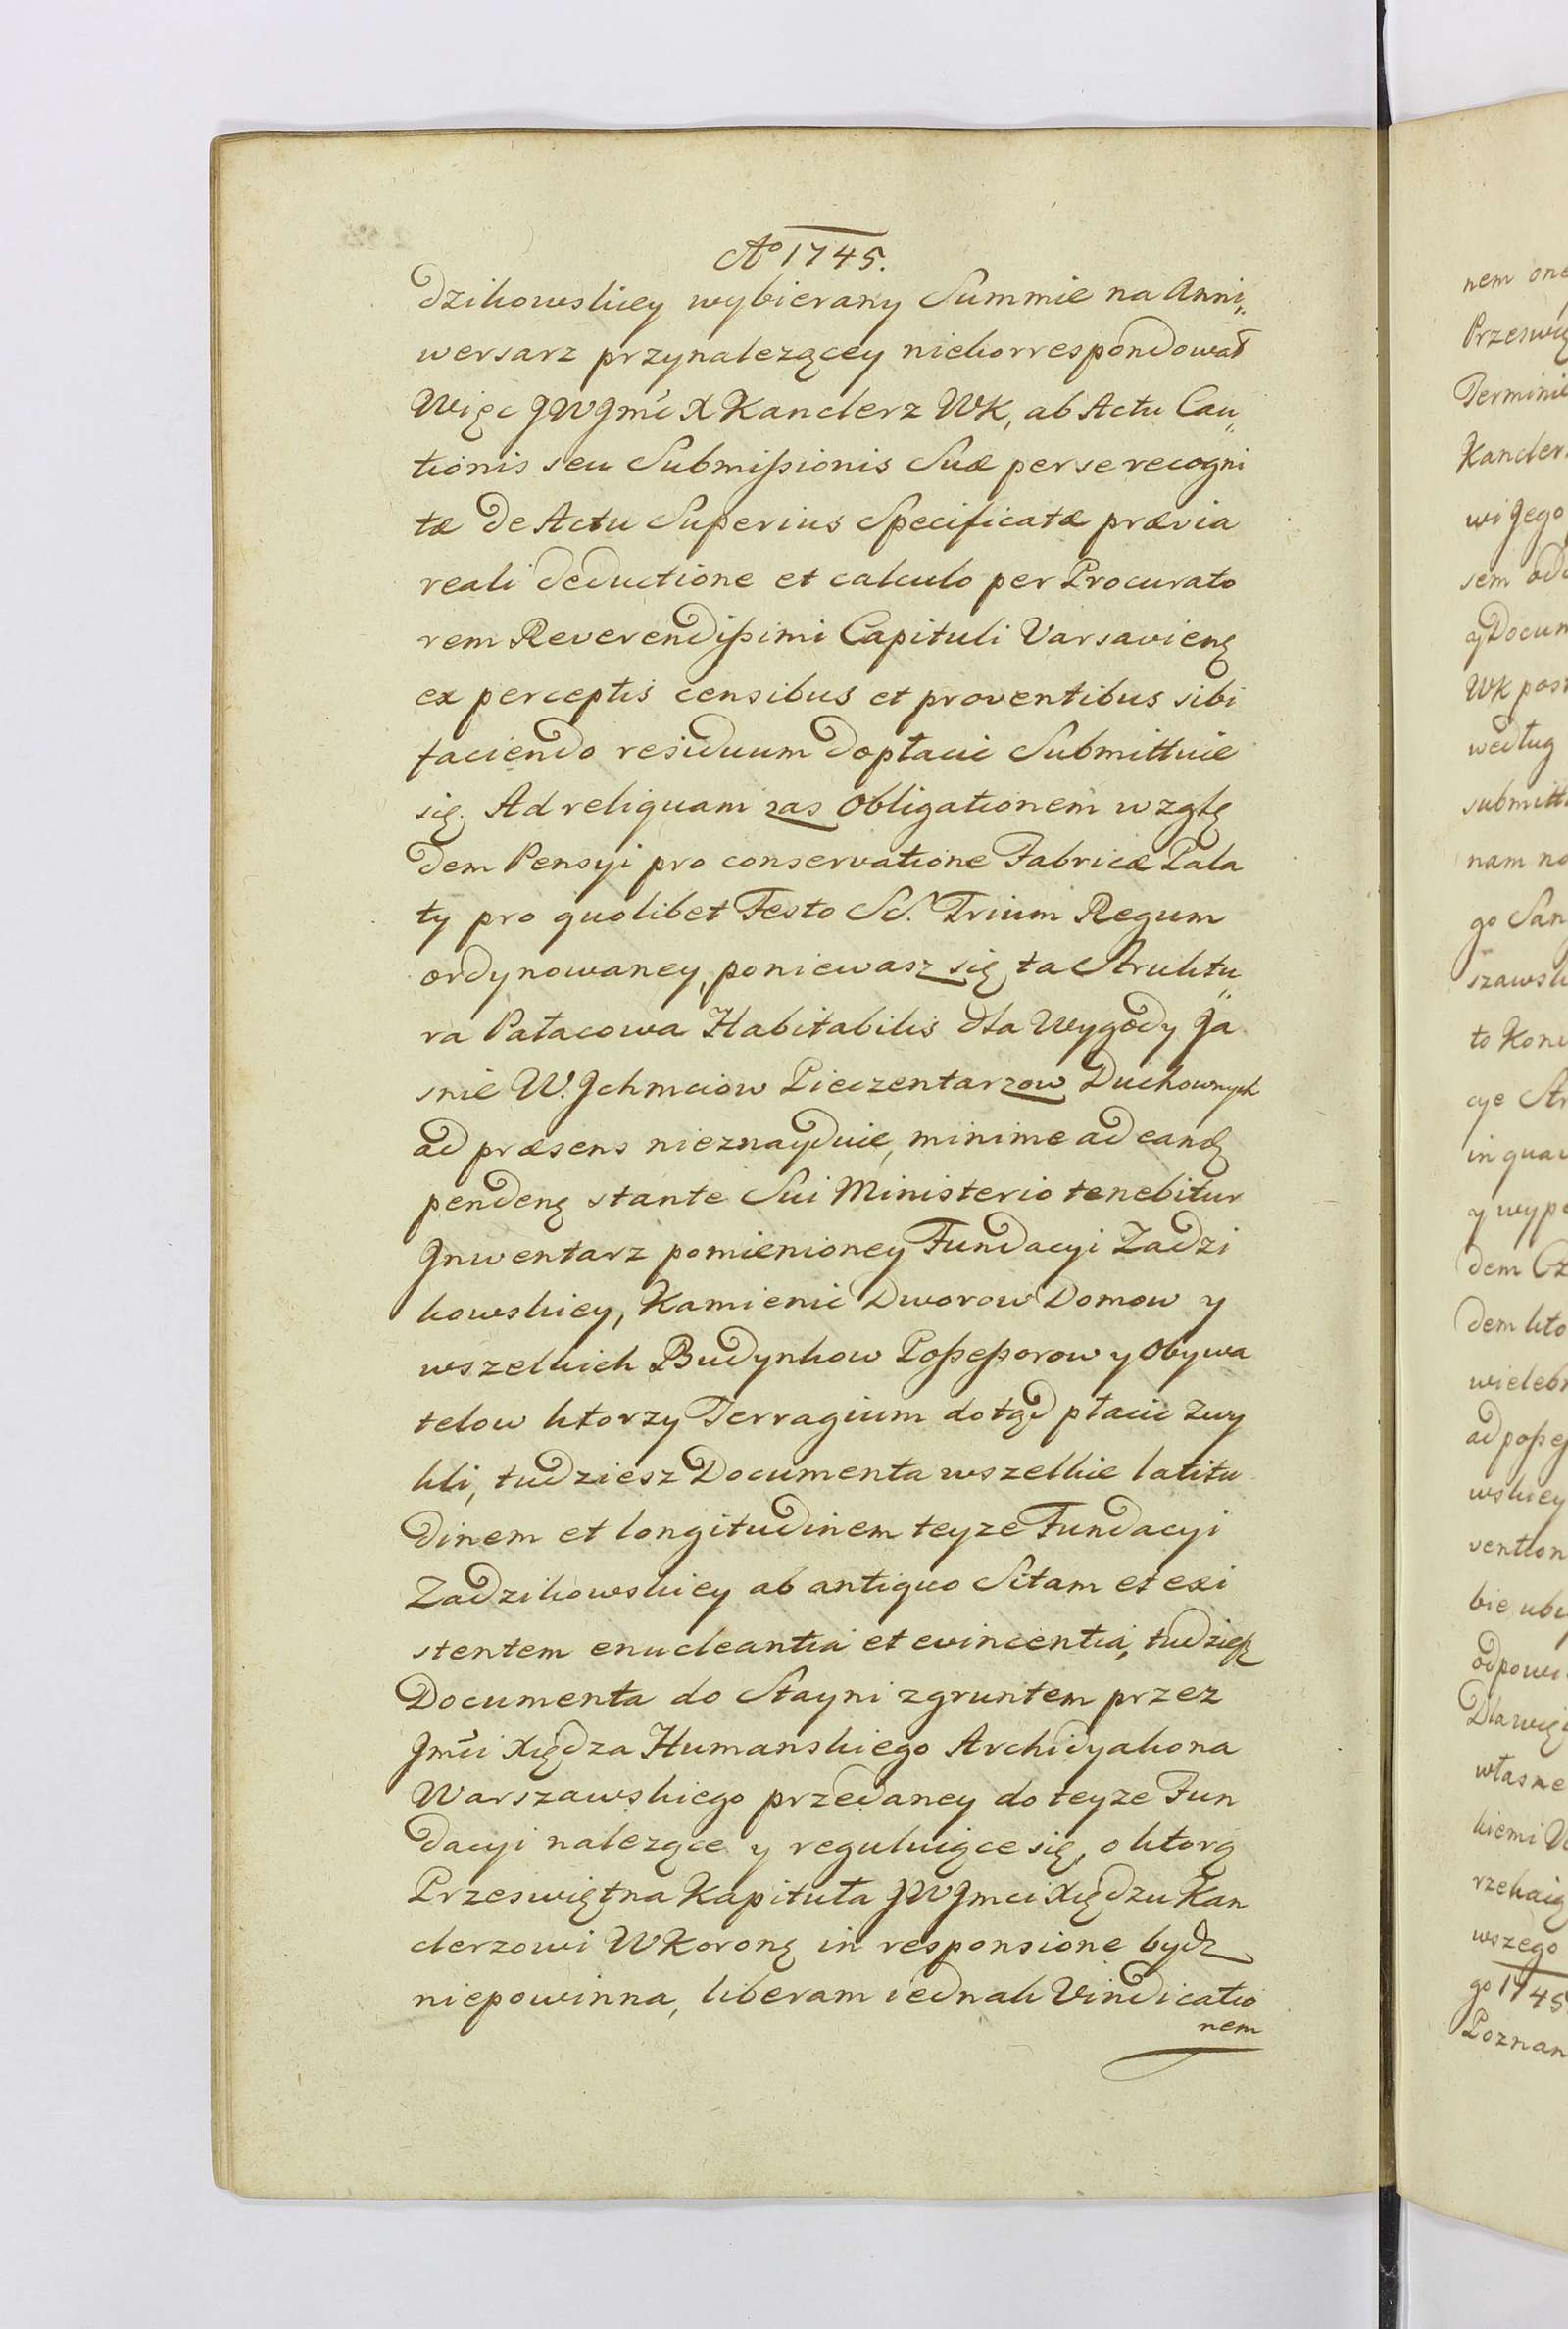 Aº 1745.
dzikowskiey wybierany Summie na Anni„
wersarz przynalezącey niekorrespondował
Więc JW Jmć X Kanclerz WK, ab Actu Cau„
tionis seu Submissionis Suæ per se recogni
tæ de Actu Superius Specificatæ prævia
reali deductione et calculo per Procurato
rem Reverendissimi Capituli Varsavienę
ex perceptis censibus et proventibus sibi
faciendo residuum dopłacić Submittuie
się. Ad reliquam zas obligationem wzglę
dem Pensyi pro conservatione Fabricæ Pala
ty pro quolibet Festo SS. Trium Regum
ordynowaney, poniewasz się ta Struktu„
ra Pałacowa Habitabilis dla Wygody Ja
snie W. Jchmciow Pieczentarzow Duchownych
ad præsens nieznayduie, minime ad eandę
pendenę stante Sui Ministerio tenebitur
Jnwentarz pomienioney Fundacyi Zadzi
kowskiey, Kamienic Dworow Domow y
wszelkich Budynkow Possessorow y Obywa
telow ktorzy Terragium dotąd płacić zwy
kli, tudziesz Documenta wszelkie latitu
dinem et longitudinem teyze Fundacyi
Zadzikowskiey ab antiquo Sitam et exi
stentem enucleantia et evincentia, tudziesz
Documenta do Stayni zgruntem przez
Jmći Xiędza Humanskiego Archidyakona
Warszawskiego przedaney do teyze Fun
dacyi nalezące y reguluiące się, o ktorą
Przeswiętna Kapituła JW Jmci Xiędzu Kan
clerzowi WKoronę in responsione bydz
niepowinna, liberam iednak Vindicatio
nem
nem one
Terminie
wi Jego
sem odd
y Docum
WK post
według
submitt
nam na
go San
szawsk
cye Str
in qua
y wypo
dem Cz
dem kto
wieleb
ad posses
wskiey
vention
bie ubi
odpowi
własne
kiemi W
wszego
go 1745
Poznan